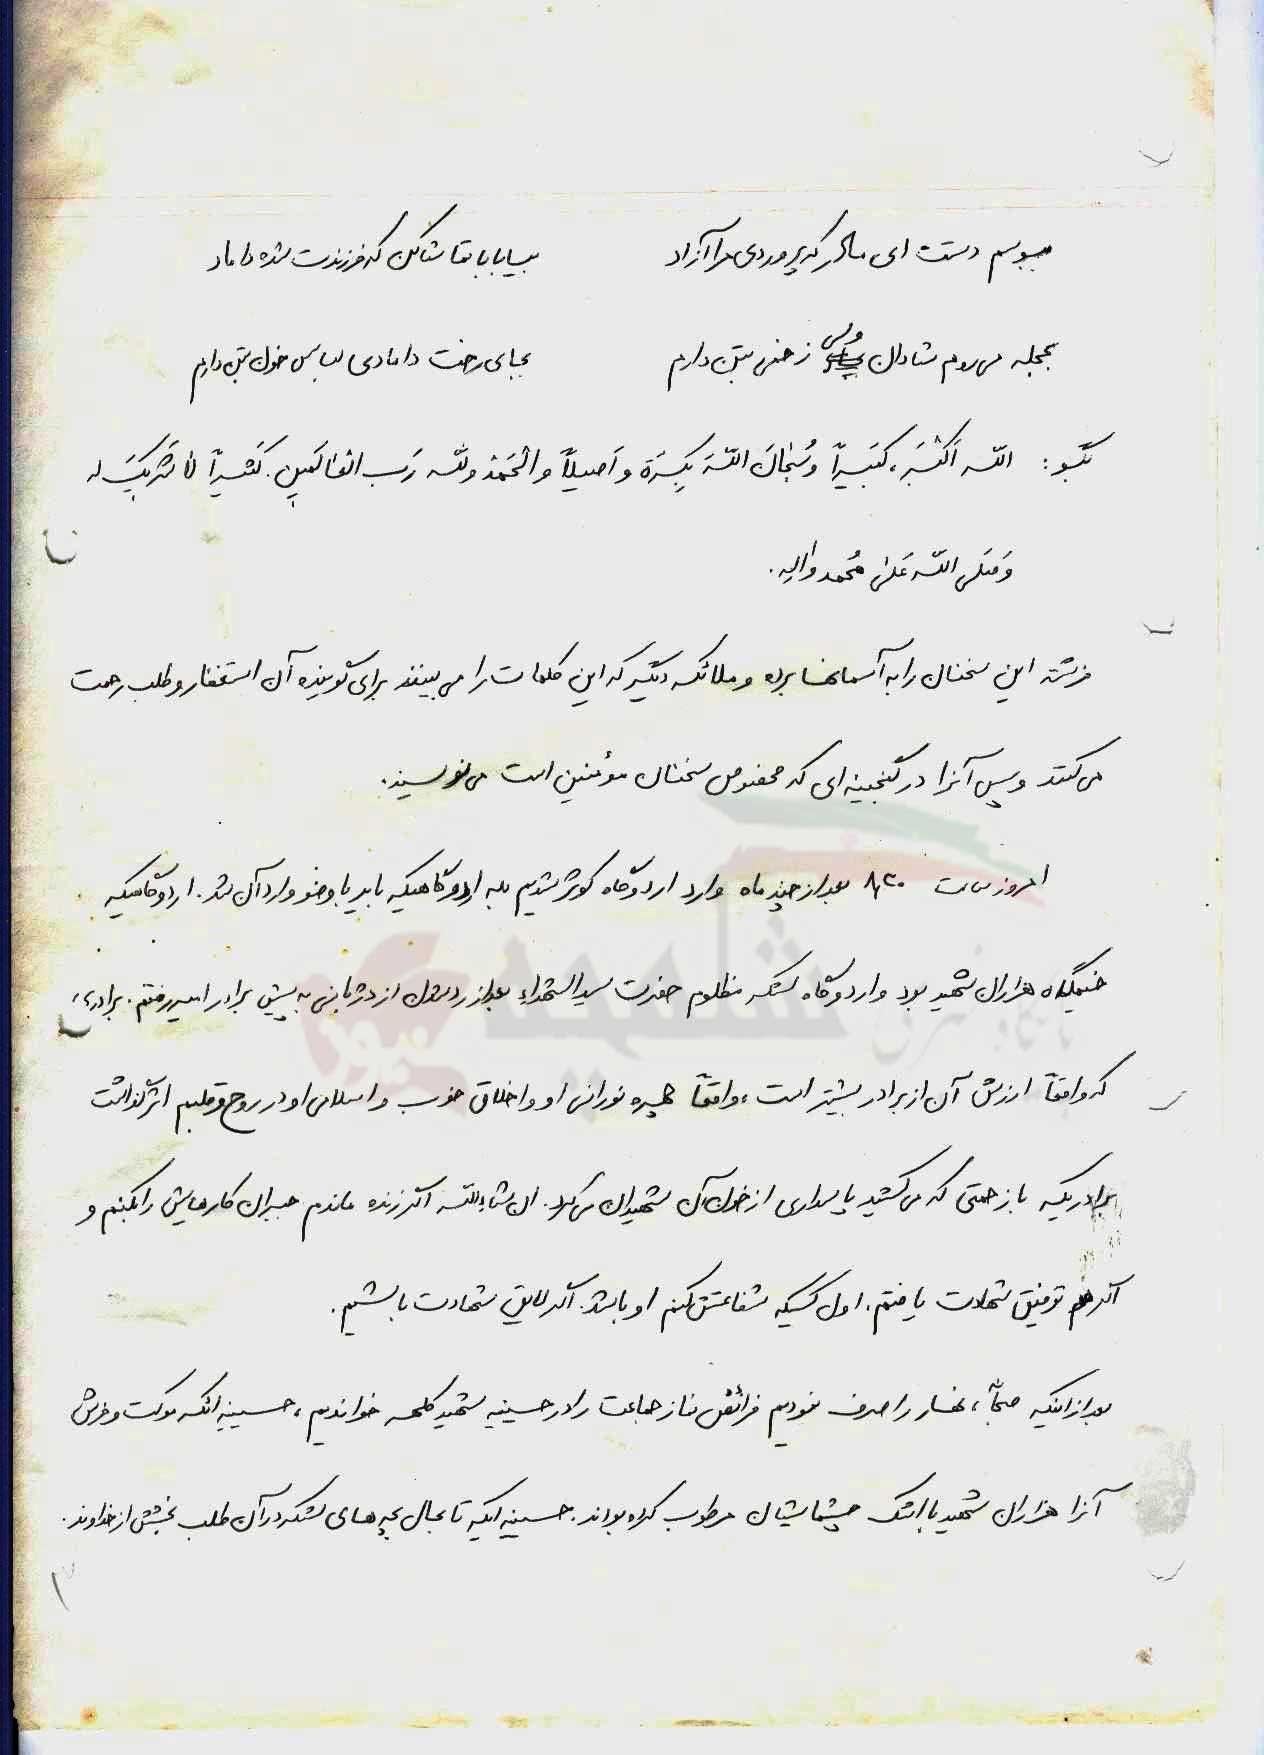 ببوسم دستت ای مادر که پروردی مرا آزاد بیا بابا تماشا کن که فرزندت شده داماد
بحجله می روم شادان ولی زخمی بتن دارم بجای رخت دامادی لباس خون بتن دارم
بگو: اللّه اَکْبَر، کَبیراً وَسُبْحانَ اللّهَ بِکْرَة وَاَصیلاً وَالْحَمْدُ وللّه رَب العالَمین. کَثیراً لا شَریکَ له
وَصَلی اللّه عَلی مُحَمد وَالِهِ.
فرشته این سخنان را به آسمانها برده و ملائکه دیگر که این کلمات را می بینند برای گوینده آن استغفار و طلب رحمت
می کنند و سپس آنرا در گنجینه ای که مخصوص سخنان مؤمنین است می نویسند.
امروز ساعت ۸٫۳۰ بعد از چند ماه وارد اردوگاه کوثر شدیم بله اردوگاهیکه باید با وضو وارد آن شد. اردوگاهیکه
خیمگاه هزاران شهید بود و اردوگاه لشکر مظلوم حضرت سید الشهداء بعد از رد شدن از دژبانی به پیش برادر امیر رفتم. برادری
که واقعاً ارزش آن از برادر بیشتر است، واقعاً چهره نورانی او و اخلاق خوب و اسلامی او در روح و قلبم اثر گذاشت
برادریکه با زحمتی که می کشید پاسداری از خون آن شهیدان می کرد. ان شاءاللّه اگر زنده ماندم جبران کارهایش را بکنم و
اگر هم توفیق شهادت یافتم. اول کسیکه شفاعتش کنم او باشد. اگر لایق شهادت باشیم.
بعد از اینکه صبحاً، نهار را صرف نمودیم فرائض نماز جماعت را در حسینیه شهید کلهر خواندیم، حسینیه ائکه موکت و فرش
آنرا هزاران شهید با اشک چشمایشان مرطوب کرده بودند. حسینیه ایکه تا بحال بچه های لشکر در آن طلب بخشش از خداوند.
۳
شاهد
نوید